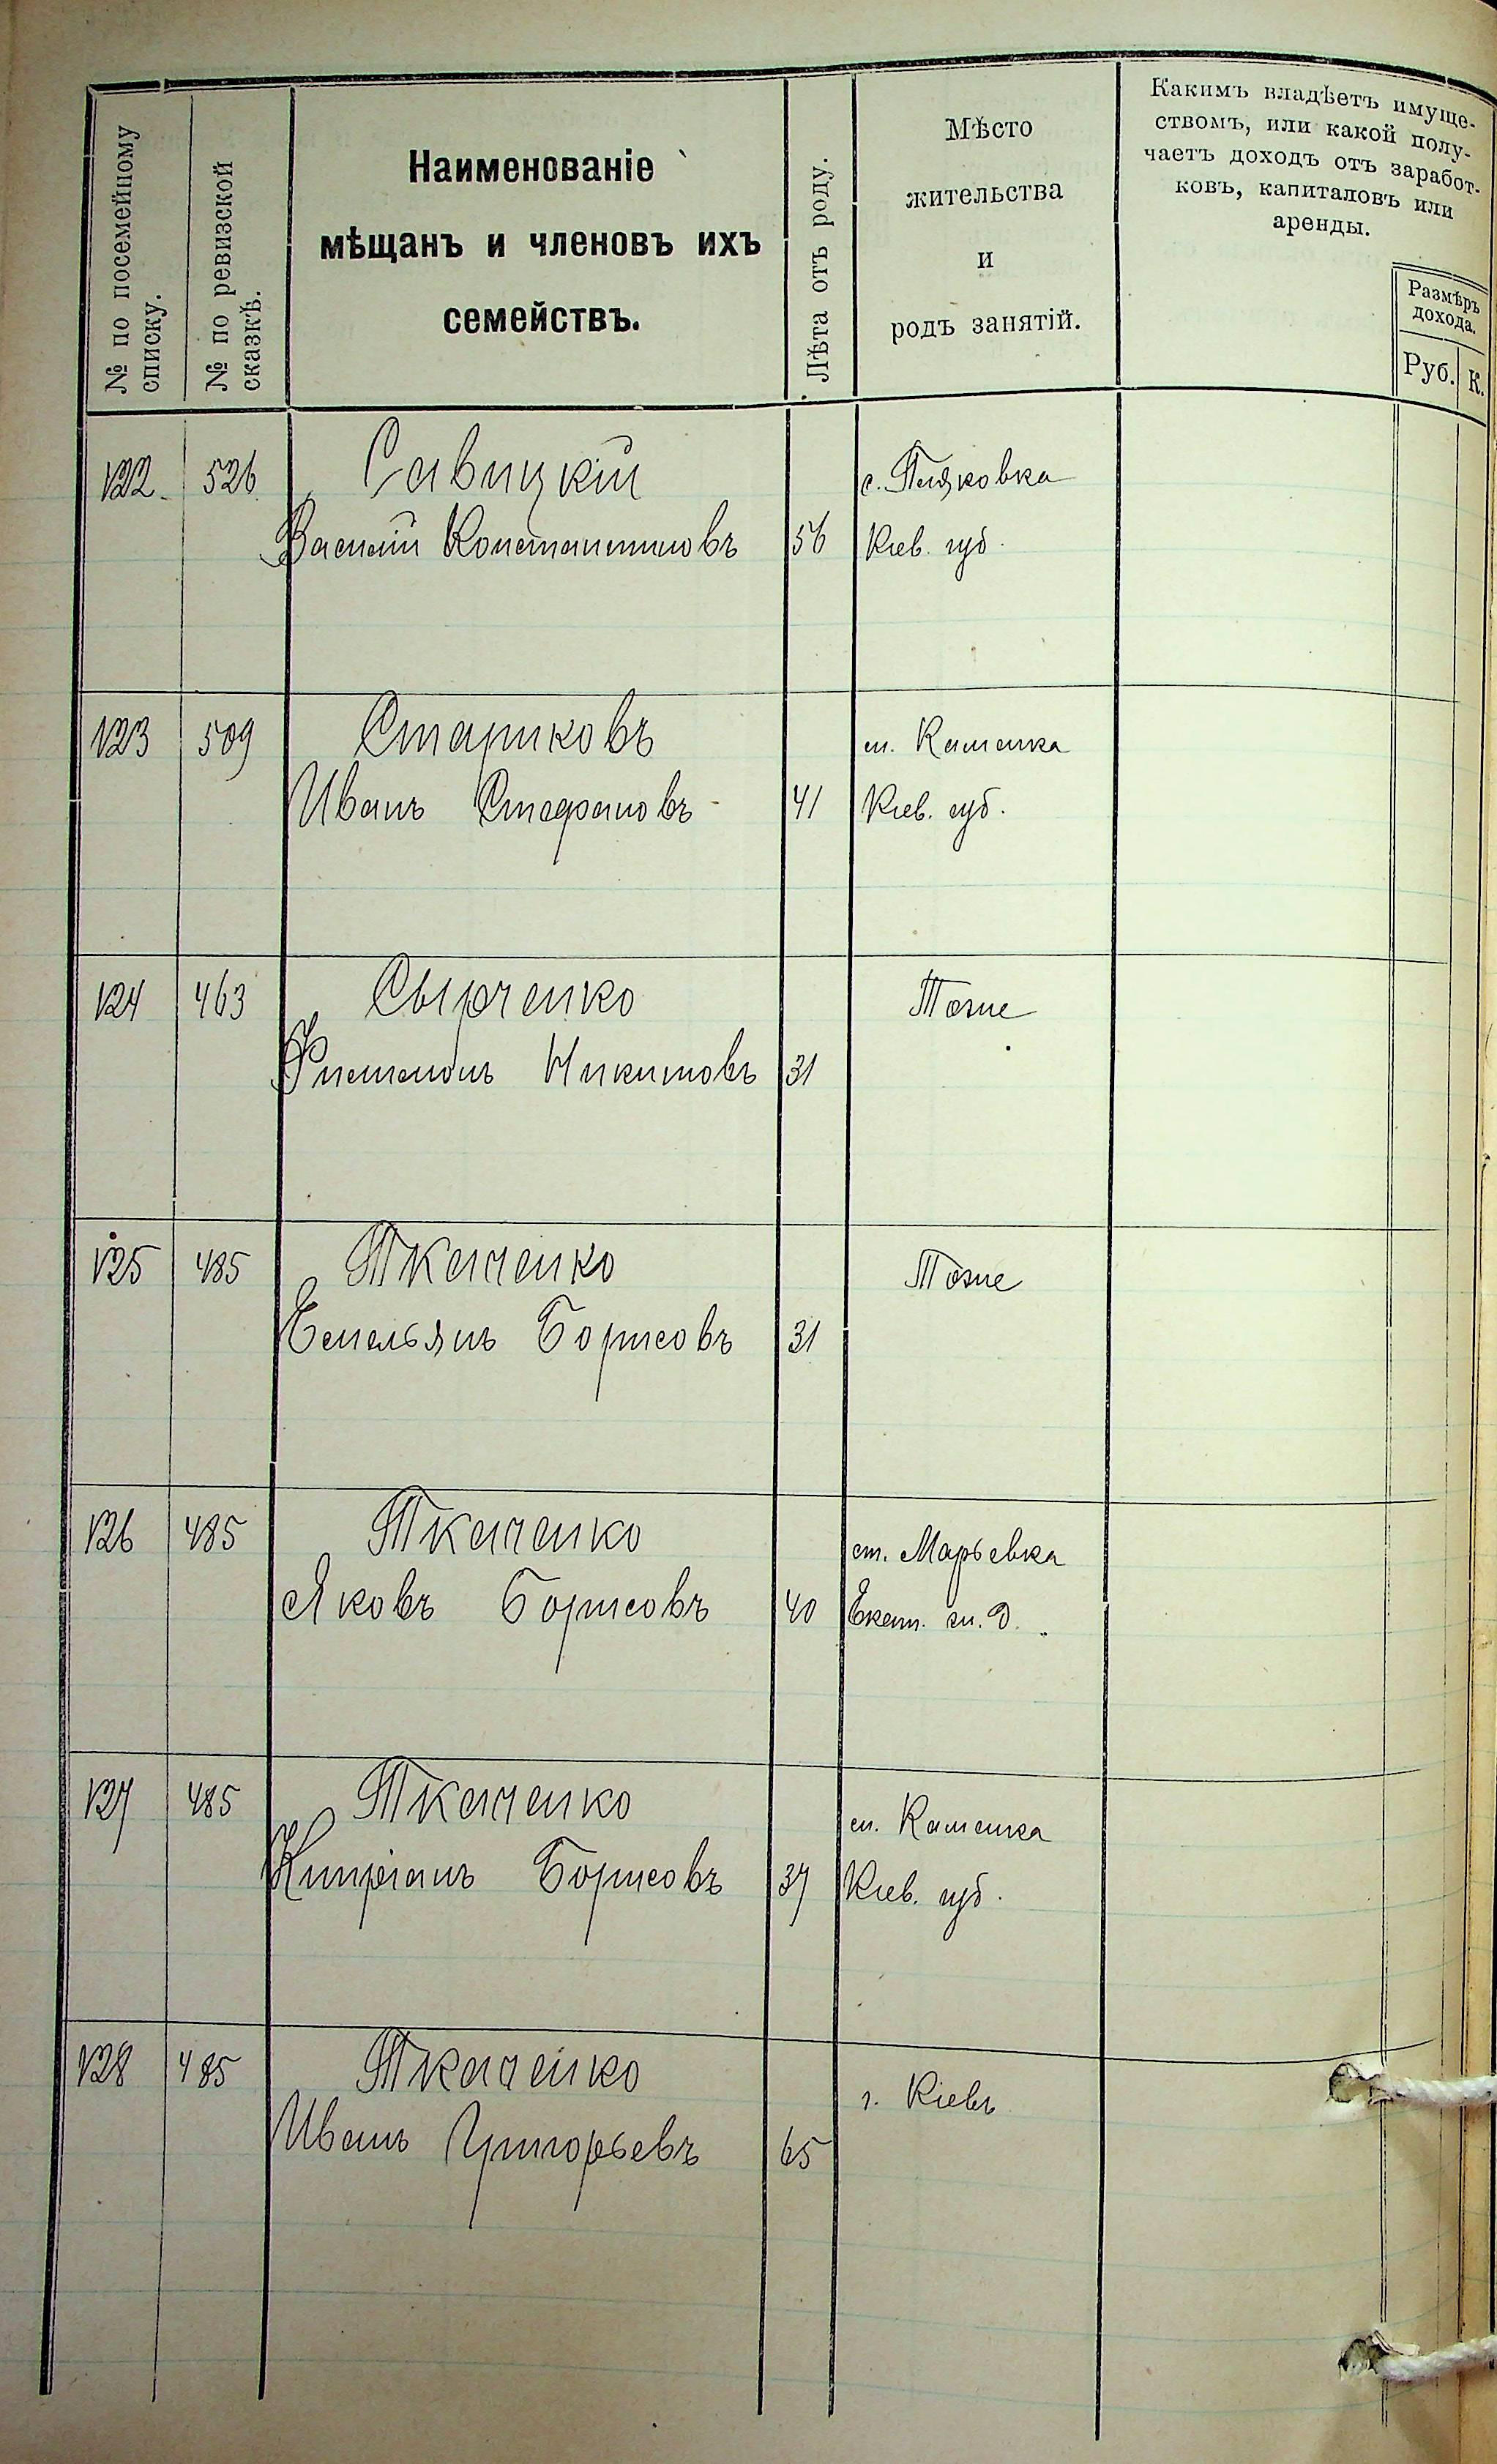 № по посемейному
списку.
№ по ревизской
сказкѣ.
Наименованіе
мѣщанъ и членовъ ихъ
семействъ.
Лѣта отъ роду.
Мѣсто
жительства
и
родъ занятій.
Какимъ владѣетъ имуще-
ствомъ, или какой полу-
чаетъ доходъ отъ заработ-
ковъ, капиталовъ или
аренды.
Размѣръ
дохода.
Руб. К.
122 526 Савицкій с.
Василій Константиновъ 56 Кіев. губ.
123 509 Стариковъ м. Каменка
Иванъ Стефановъ 41 Кіев. губ.
124 463 Сырченко Тоже
Филимонъ Никитовъ 31
125 485 Ткаченко Тоже
Емельянъ Борисовъ 31
126 485 Ткаченко ст. Марьевка
Яковъ Борисовъ 40 Екат. ж. д.
127 485 Ткаченко м. Каменка
Кипріанъ Борисовъ 37 Кіев. губ.
128 485 Ткаченко г. Кіевъ
Иванъ Григорьевъ 65